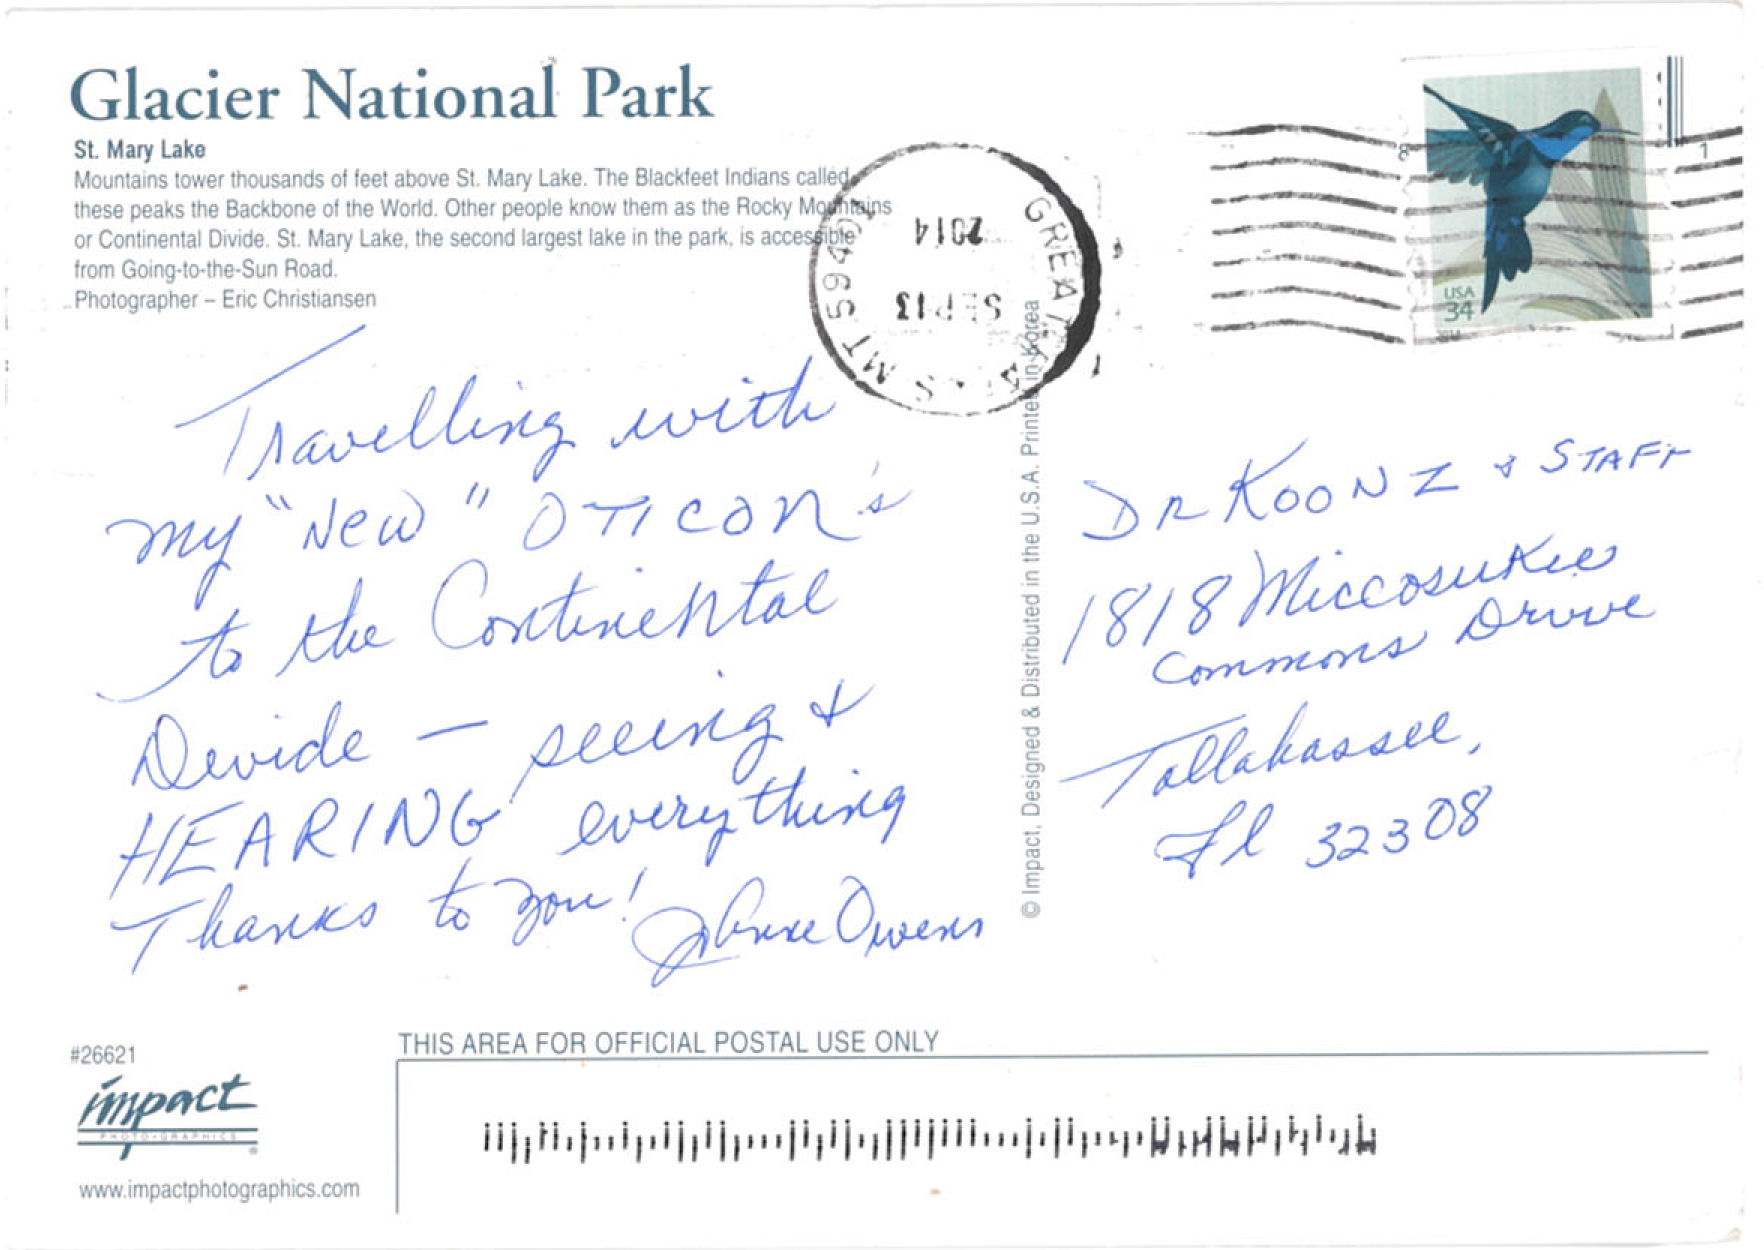 Glacier National Park
St. Mary Lake
Mountains tower thousands of feet above St. Mary Lake. The Blackfeet Indians called
these peaks the Backbone of the World. Other people know them as the Rocky Mountains
or Continental Divide. St. Mary Lake, the second largest lake in the park, is accessible
from Going-to-the-Sun Road.
Photographer – Eric Christiansen
GREAT FALLS MT 594
SEP 13
2014
USA
34
Travelling with
my "New" OTICON's
to the Continental
Devide — seeing &
HEARING everything
Thanks to you!
JoAnne Owens
© Impact, Designed & Distributed in the U.S.A. Printed in Korea
DR KOONZ & STAFF
1818 Miccosukee
Commons Drive
Tallahassee,
Fl 32308
#26621
impact
PHOTO-GRAPHICS
®
www.impactphotographics.com
THIS AREA FOR OFFICIAL POSTAL USE ONLY